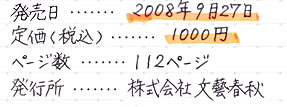 発売日 ‥‥‥‥ 2008年9月27日
定価(税込)‥‥‥‥ 1000円
ページ数 ‥‥‥‥ 112ページ
発行所 ‥‥‥‥ 株式会社 文藝春秋